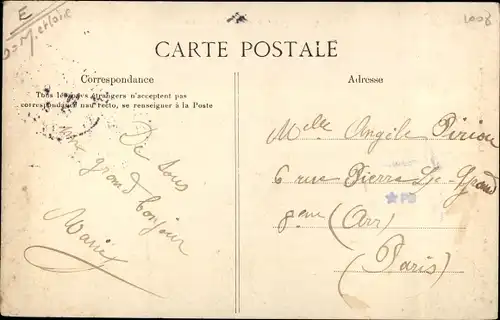 E
1008
CARTE POSTALE
Correspondance
Tous les pays étrangers n'acceptent pas
correspondance au recto, se renseigner à la Poste
De tous
grand bonjour
Marie
Adresse
Melle Angèle Piriou
6 rue Pierre Le-Grand
PD
8eme (Arr)
(Paris)